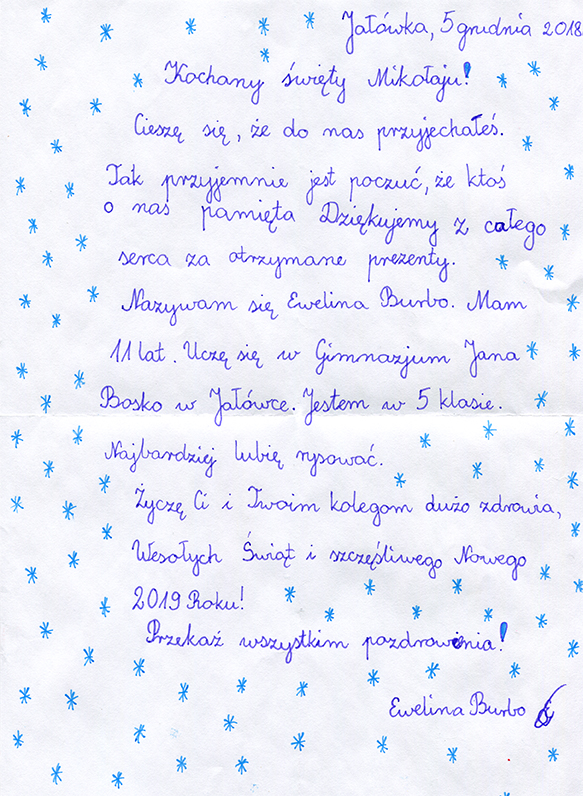 Jałówka, 5 grudnia 2018
Kochany święty Mikołaju!
Cieszę się, że do nas przyjechałeś.
Tak przyjemnie jest poczuć, że ktoś
o nas pamięta Dziękujemy z całego
serca za otrzymane prezenty.
Nazywam się Ewelina Burbo. Mam
11 lat. Uczę się w Gimnazjum Jana
Bosko w Jałówce. Jestem w 5 klasie.
Najbardziej lubię rysować.
Życzę Ci i Twoim kolegom dużo zdrowia,
Wesołych Świąt i szczęśliwego Nowego
2019 Roku!
Przekaż wszystkim pozdrowienia!
Ewelina Burbo